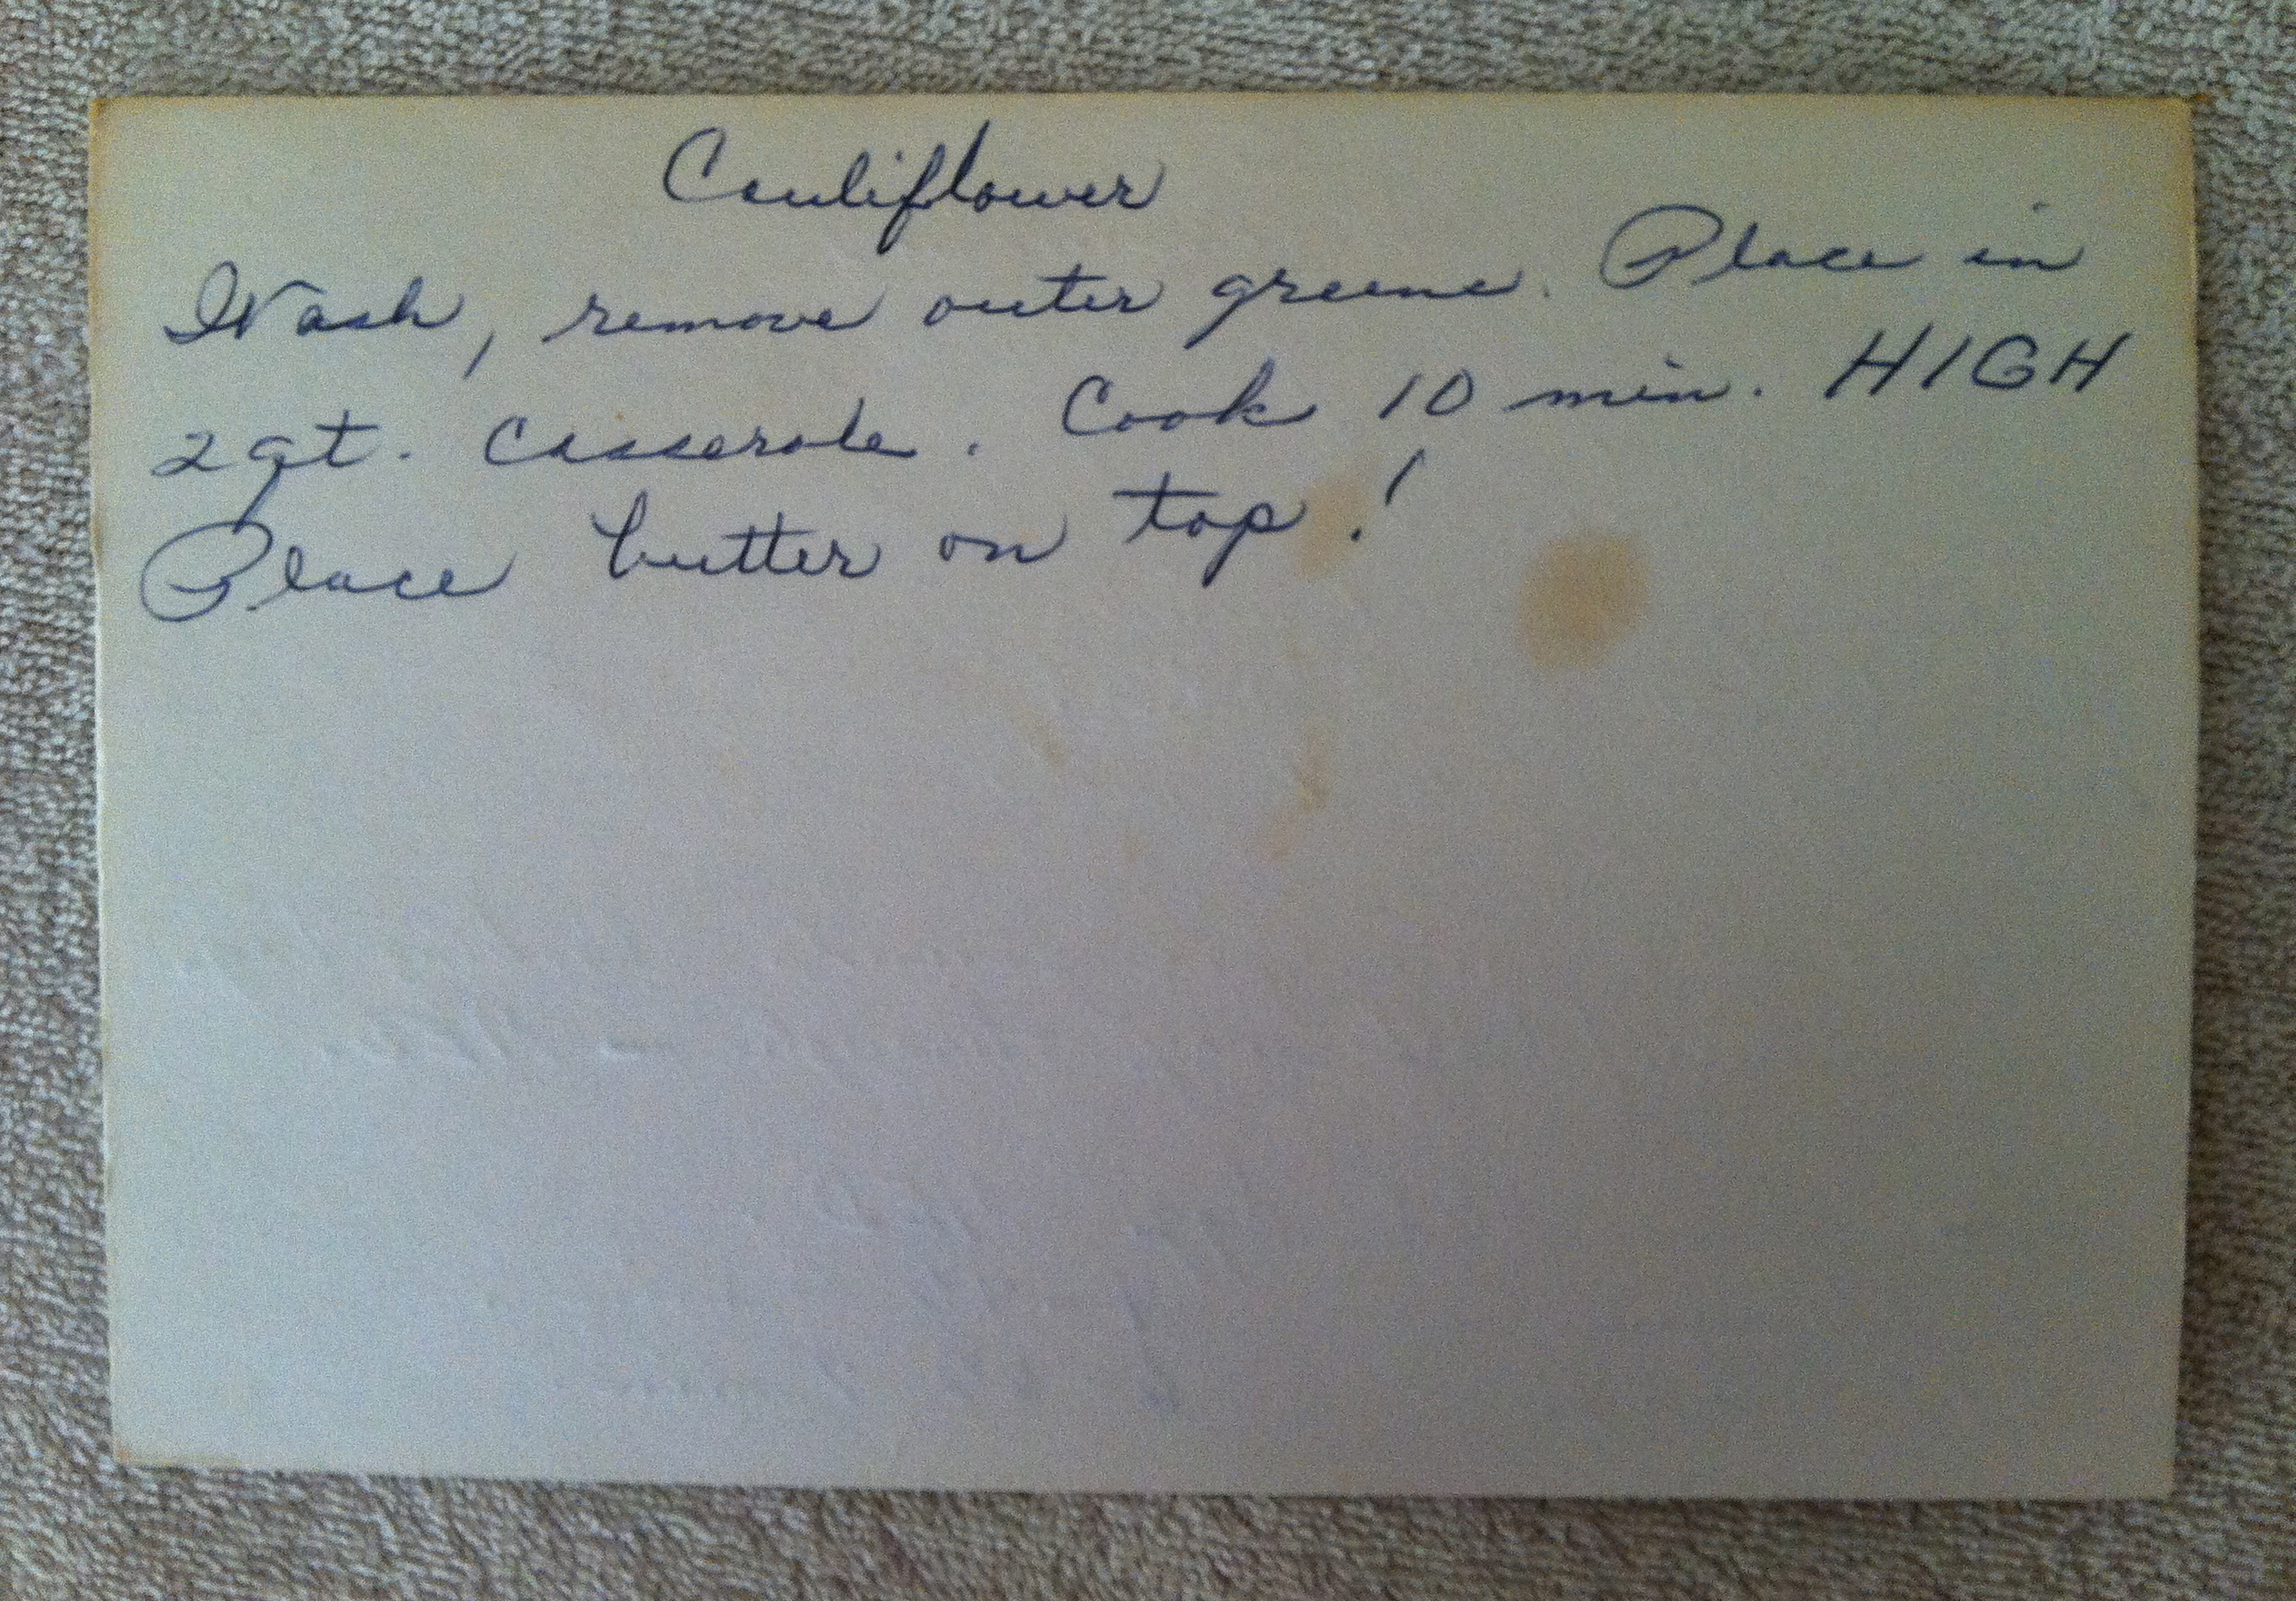 Cauliflower
Wash, remove outer greene. Place in
2 qt. casserole. Cook 10 min. HIGH
Place butter on top!